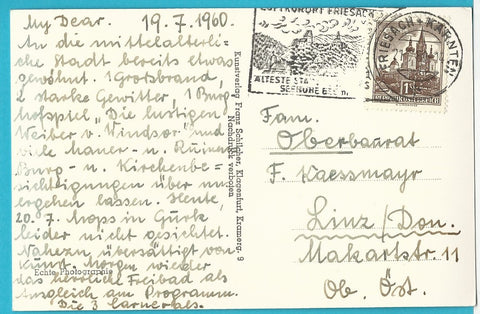 My Dear. 19.7.1960.
An die mittelalterli=
che Stadt bereits etwas
gewöhnt. 1 Großbrand,
2 starke Gewitter, 1 Burg
hofspiel "Die lustigen
Weiber v. Windsor" und
viele Mauer- u. Ruinen
Burg- u. Kirchenbe=
sichtigungen über uns
ergehen lassen. Heute,
20.7. Mops in Gurk
leider nicht gesichtet.
Nahezu übersättigt von
Kunst. Morgen wieder
das herrliche Freibad als
Ausgleich am Programm.
Die 3
Echte Photographie
Kunstverlag Franz Schilcher, Klagenfurt, Kramerg. 9
Nachdruck verboten
LUFTKURORT FRIESACH
ÄLTESTE STADT
FRIESACH KÄRNTEN
Fam.
Oberbaurat
F. Kaessmayr
Linz/Don.
Makartstr. 11
Ob. Öst.